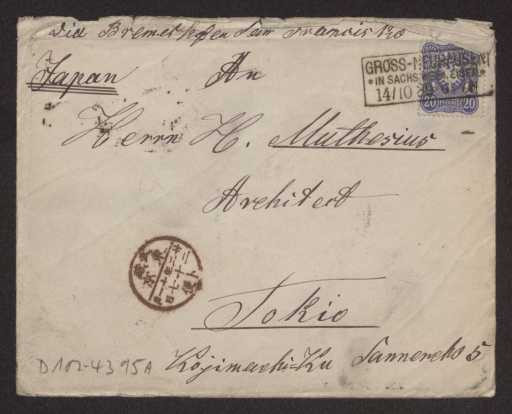 Via Bremerhafen San Francisko
Japan
An
GROSS-NEUHAUSEN
*IN SACHS.
14/10
20 20
Herrn H. Muthesius
Architect
Tokio
Kojimachi-Ku Sannencho 5
D102-4395A